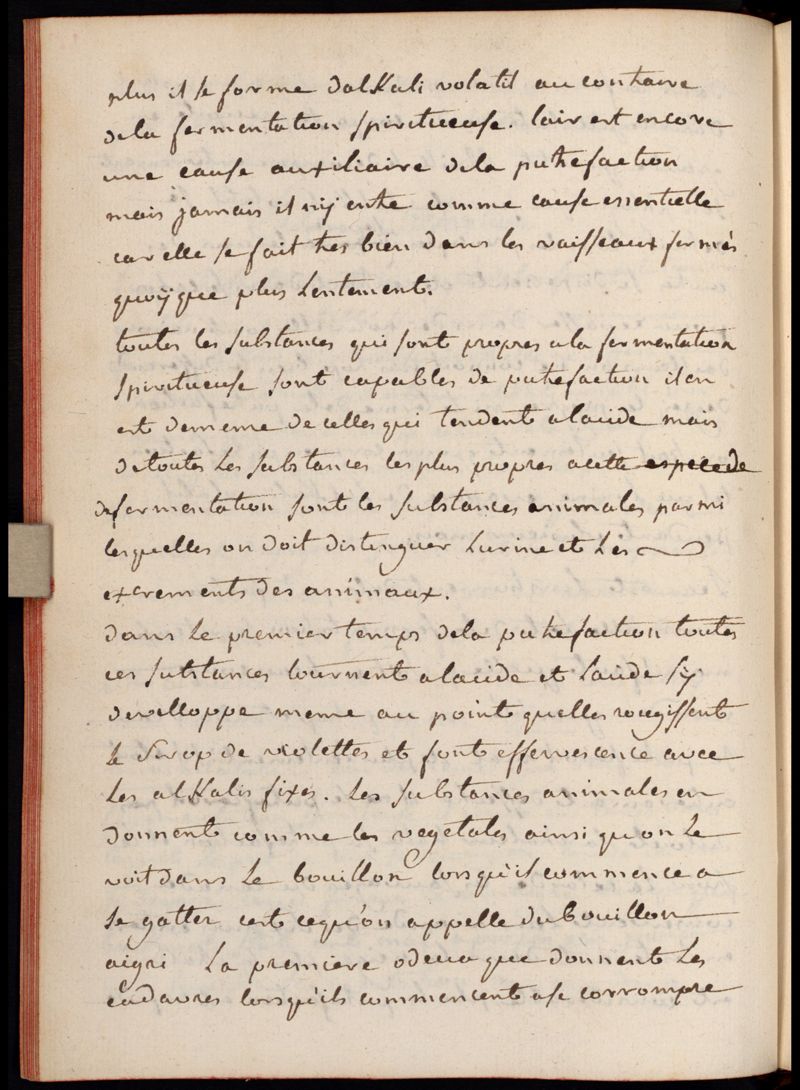 plus il se forme dalKali volatil au contraire
de la fermentation spiritueuse. lair est encore
une cause auxiliaire de la putrefaction
mais jamais il ny entre comme cause essentielle
car elle se fait tres bien dans les vaisseaux fermés
quoÿque plus Lentement.
toutes les substances qui sont propres a la fermentation
spiritueuse sont capables de putrefaction il en
est de meme de celles qui tendent a lacide mais
de toutes Les substances les plus propres a cette espece de
de fermentation sont les substances animales parmi
lesquelles on doit distinguer Lurine et Les
excrements des animaux.
dans Le premier temps de la putrefaction toutes
ces substances tournent a lacide et Lacide sy
developpe meme au point quelles rougissent
Le Sirop de violettes et font effervescence avec
Les alKalis fixes. Les substances animales en
donnent comme les vegetales ainsi quon Le
voit dans Le bouillon lorsqu'il commence a
se gatter cest cequ'on appelle du bouillon
aigri La premiere odeur que donnent Les
cadavres lorsqu'ils commencent ase corrompre